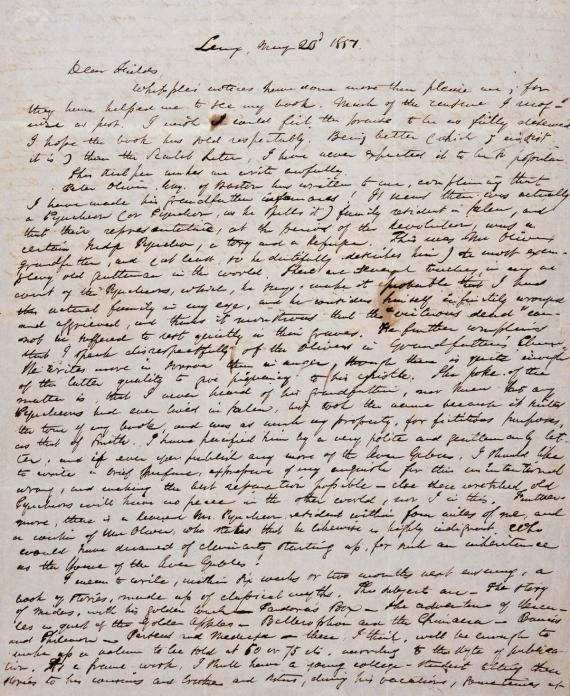 Lenox, May 23d 1851.
Dear Fields,
Whipple's notices have done more than please me; for
they have helped me to see my book. Much of the censure I recog-
nize as just. I wish I could feel the praise to be so fully deserved.
I hope the book has sold respectably. Being better (which I insist
it is) than the Scarlet Letter, I have never expected it to be so popular.
This steel pen makes me write awfully.
Peter Oliver, Esq. of Boston has written to me, complaining that
I have made his grandfather infamous! It seems there was actually
a Pyncheon (or Pynchon, as he spells it) family resident in Salem, and
that their representative, at the period of the Revolution, was a
certain Judge Pynchon, a tory and a refugee. This was Mr Oliver's
grandfather, and (at least, so he dutifully describes him) the most exem-
plary old gentleman in the world. There are several touches, in my ac-
count of the Pyncheons, which, he says, make it probable that I had
this actual family in my eye, and he considers himself infinitely wronged
and aggrieved, and thinks it monstrous that the "virtuous dead" can-
not be suffered to rest quietly in their graves. He further complains
that I speak disrespectfully of the Olivers in Grandfather's Chair.
He writes more in sorrow than in anger, though there is quite enough
of the latter quality to give piquancy to his epistle. The joke of the
matter is that I never heard of his grandfather, nor knew that any
Pyncheons had ever lived in Salem, but took the name because it suited
the tone of my book, and was as much my property, for fictitious purposes,
as that of Smith. I have pacified him by a very polite and gentlemanly let-
ter, and if ever you publish any more of the Seven Gables, I should like
to write a brief Preface, expressive of my anguish for this unintentional
wrong, and making the best reparation possible — else these wretched old
Pyncheons will have no peace in the other world, nor I in this. Further-
more, there is a Mr Pyncheon, resident within four miles of me, and
a cousin of Mr Oliver, who states that he likewise is highly indignant. Who
would have dreamed of claimants starting up, for such an inheritance
as the House of the Seven Gables!
I mean to write, within six weeks or two months next ensuing, a
book of stories, made up of classical myths. The subjects are — The Story
of Midas, with his Golden Touch — Pandora's Box — The adventure of Hercu-
les in quest of the Golden Apples — Bellerophon and the Chimaera — Baucis
and Philemon — Perseus and Medusa — these, I think, will be enough to
make up a volume to be sold at 60 or 75 cts. according to the style of publica-
tion. As a frame-work, I shall have a young college-student telling these
stories to his cousins and brothers and sisters, during his vacations, sometimes at